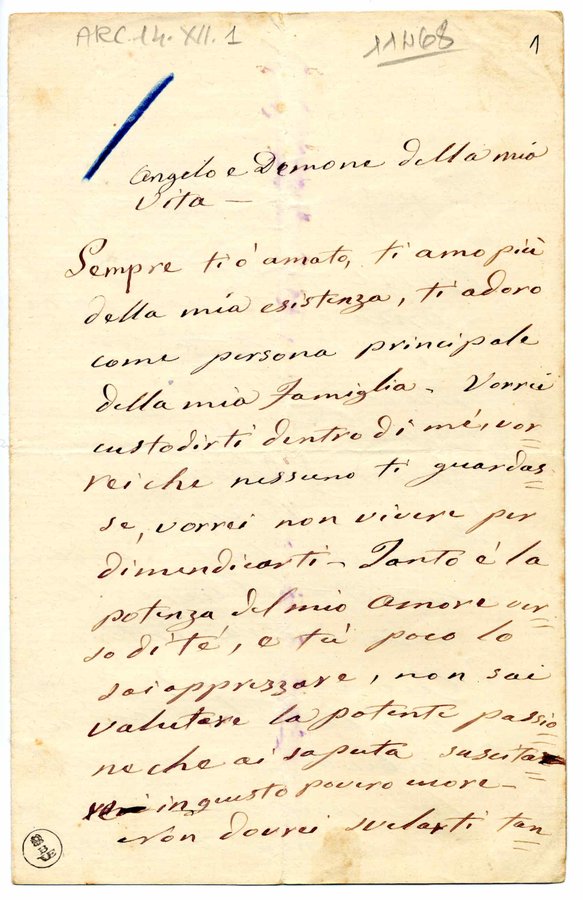 ARC.14.XII.1
11468
1
Angelo e Demone della mia
Vita —
Sempre ti ó amato, ti amo più
della mia esistenza, ti adoro
come persona principale
della mia Famiglia - Vorrei
custodirti dentro di mé, vor=
rei che nessuno ti guardas=
se, vorrei non vivere per
dimendicarti - Tanto é la
potenza del mio Amore ver=
so di té, e tú poco lo
sai apprezzare, non sai
valutare la potente passio=
ne che ai saputa suscitar=
in questo povero cuore -
Non dovrei svelarti tan=